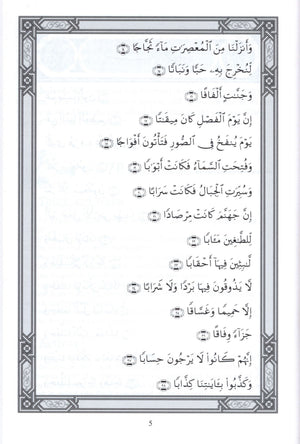 وَأَنزَلْنَا مِنَ الْمُعْصِرَاتِ مَاءً ثَجَّاجًا ١٤
لِّنُخْرِجَ بِهِ حَبًّا وَنَبَاتًا ١٥
وَجَنَّاتٍ أَلْفَافًا ١٦
إِنَّ يَوْمَ الْفَصْلِ كَانَ مِيقَاتًا ١٧
يَوْمَ يُنفَخُ فِي الصُّورِ فَتَأْتُونَ أَفْوَاجًا ١٨
وَفُتِحَتِ السَّمَاءُ فَكَانَتْ أَبْوَابًا ١٩
وَسُيِّرَتِ الْجِبَالُ فَكَانَتْ سَرَابًا ٢٠
إِنَّ جَهَنَّمَ كَانَتْ مِرْصَادًا ٢١
لِّلطَّاغِينَ مَآبًا ٢٢
لَّابِثِينَ فِيهَا أَحْقَابًا ٢٣
لَّا يَذُوقُونَ فِيهَا بَرْدًا وَلَا شَرَابًا ٢٤
إِلَّا حَمِيمًا وَغَسَّاقًا ٢٥
جَزَاءً وِفَاقًا ٢٦
إِنَّهُمْ كَانُوا لَا يَرْجُونَ حِسَابًا ٢٧
وَكَذَّبُوا بِآيَاتِنَا كِذَّابًا ٢٨
5